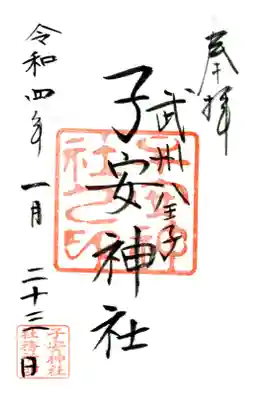 奉拝
武州八王子
子安神社
令和四年 一月 二十三日
子安神社之印
子安神社
社務所